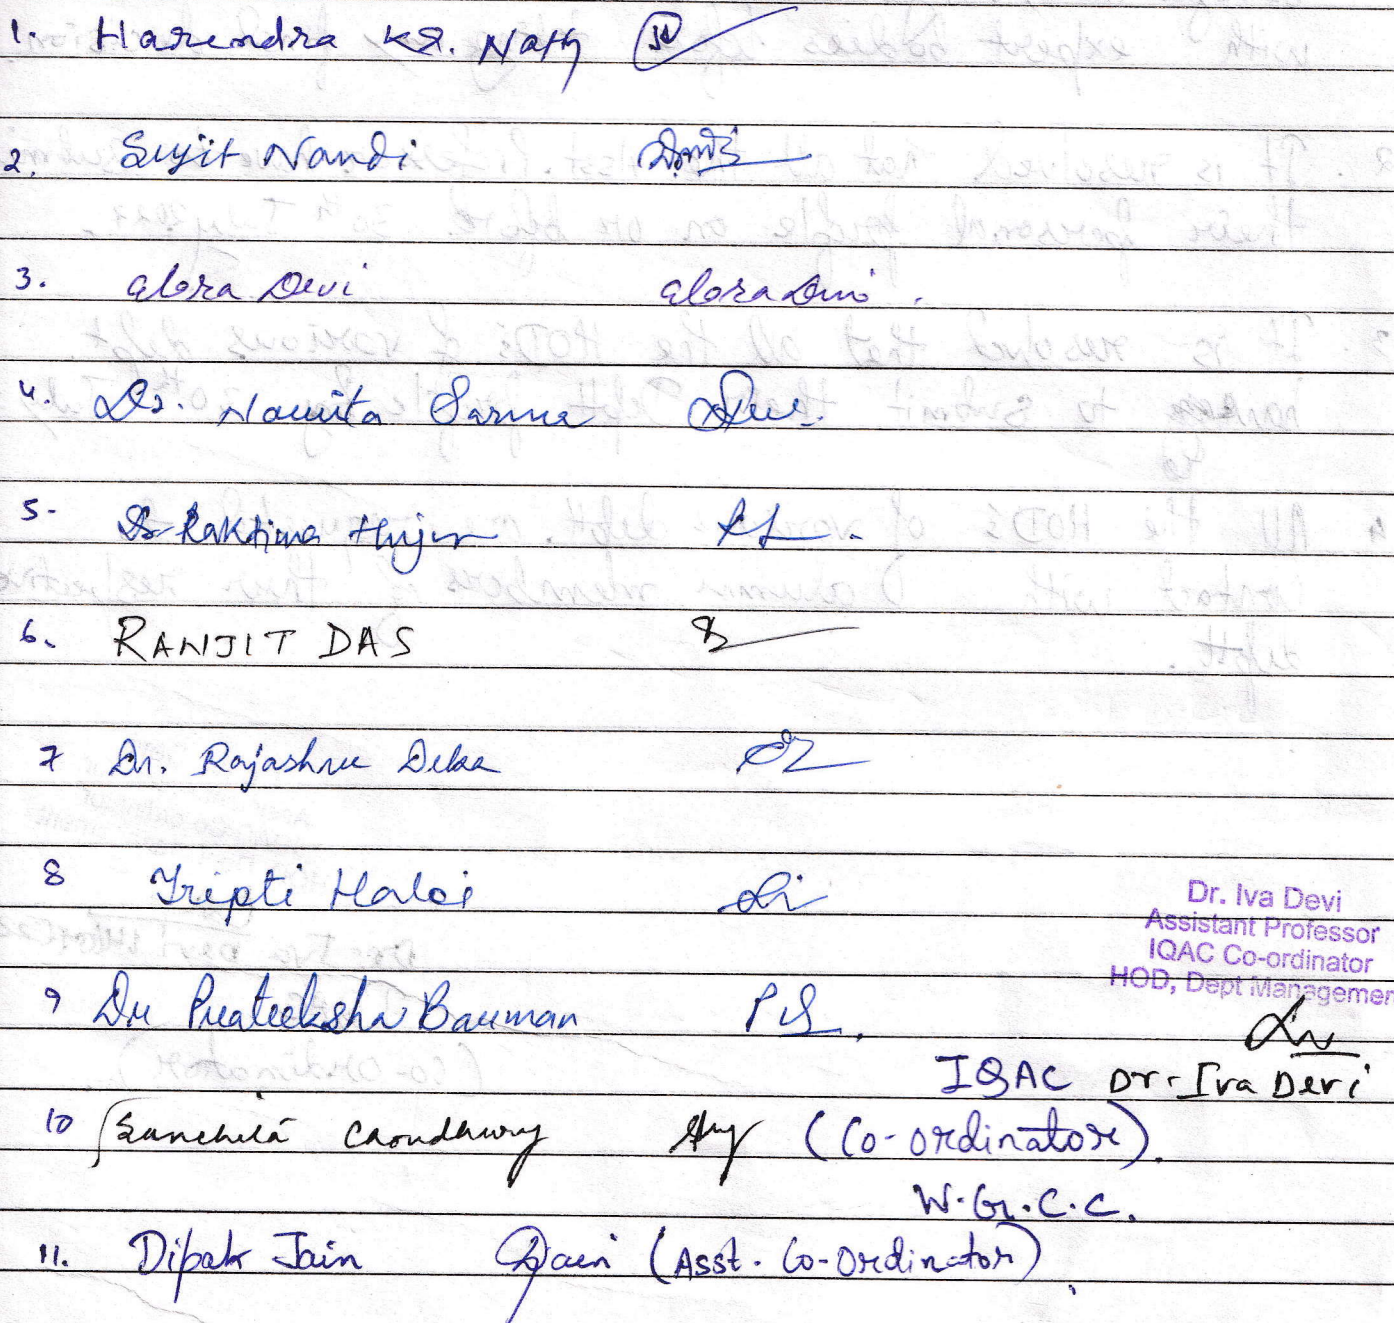 1. Harendra Kr. Nath
2. Sujit Nandi
3. Alora Devi Alora Devi.
4. Dr. Namita Sarma
5- Dr Raktima Hujur
6. RANJIT DAS
7 Dr. Rajashree Deka
8 Tripti Haloi
Dr. Iva Devi
Assistant Professor
IQAC Co-ordinator
HOD, Dept Managemen
9 Dr Prateeksha Barman
IQAC Dr. Iva Devi
10 Sanchita Choudhury (Co-ordinator).
W.G.C.C.
11. Dipak Jain Djain (Asst. Co-ordinator)